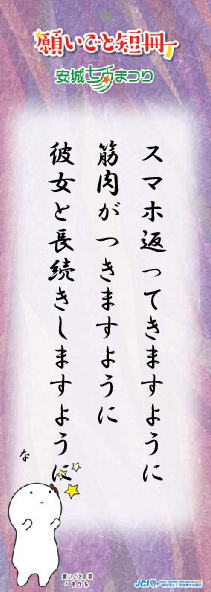 願いごと短冊
安城七夕まつり
スマホ返ってきますように
筋肉がつきますように
彼女と長続きしますように
な
JCI